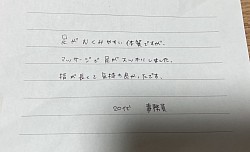 足がむくみやすい体質ですが、
マッサージで足がスッキリしました。
指が長くて気持ち良かったです。
20代 事務員